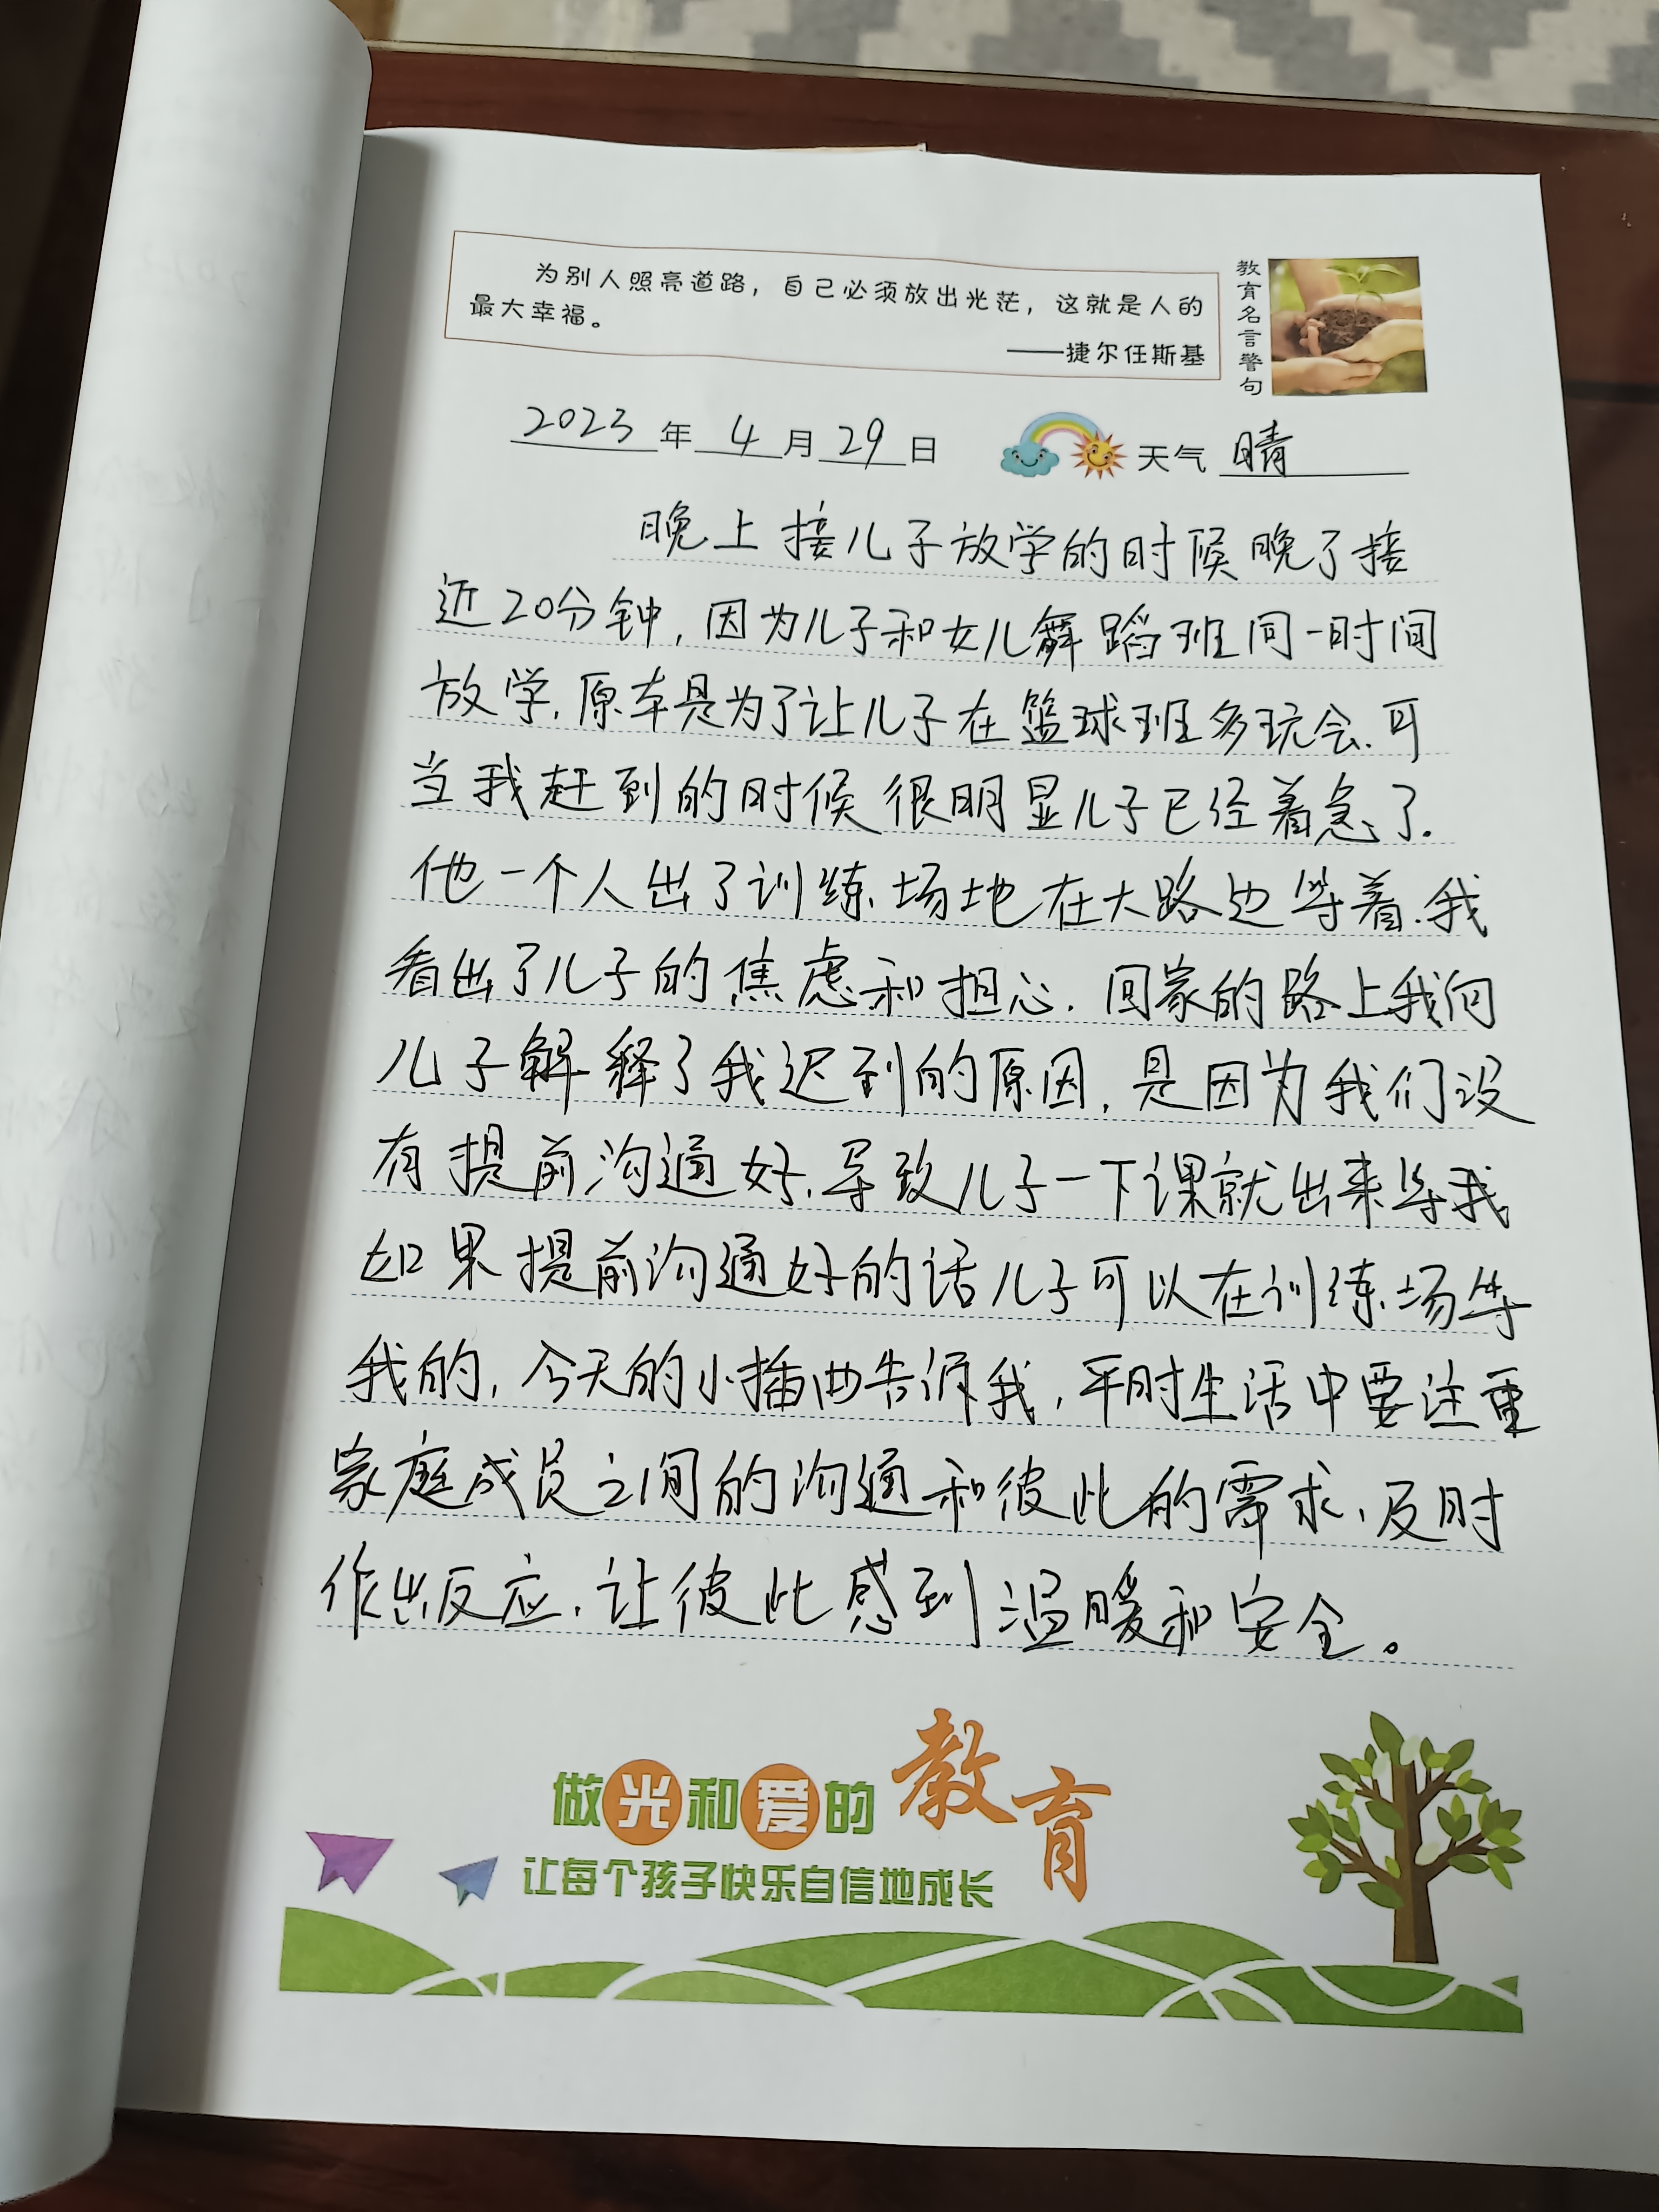 为别人照亮道路，自己必须放出光茫，这就是人的
最大幸福。
——捷尔任斯基
教育名言警句
2023年4月29日 天气 晴
晚上接儿子放学的时候晚了接
近20分钟，因为儿子和女儿舞蹈班同一时间
放学，原本是为了让儿子在篮球班多玩会.可
当我赶到的时候很明显儿子已经着急了.
他一个人出了训练场地在大路边等着.我
看出了儿子的焦虑和担心.回家的路上我向
儿子解释了我迟到的原因，是因为我们没
有提前沟通好，导致儿子一下课就出来等我，
如果提前沟通好的话儿子可以在训练场等
我的，今天的小插曲告诉我，平时生活中要注重
家庭成员之间的沟通和彼此的需求，及时
作出反应，让彼此感到温暖和安全。
做光和爱的教育
让每个孩子快乐自信地成长